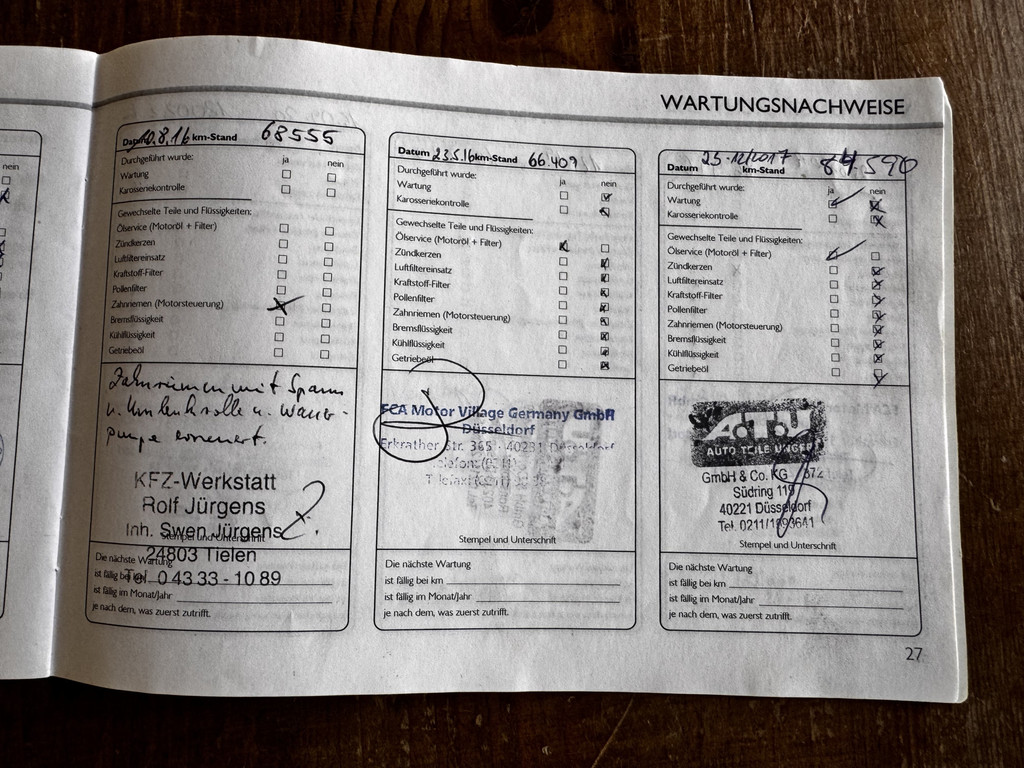 WARTUNGSNACHWEISE
Datum 10.8.16 km-Stand 68555
Durchgeführt wurde: ja nein
Wartung
Karosseriekontrolle
Gewechselte Teile und Flüssigkeiten:
Ölservice (Motoröl + Filter)
Zündkerzen
Luftfiltereinsatz
Kraftstoff-Filter
Pollenfilter
Zahnriemen (Motorsteuerung)
Bremsflüssigkeit
Kühlflüssigkeit
Getriebeöl
Zahnriemen mit Spann
u. Umlenkrolle u. Wasser-
pumpe erneuert.
KFZ-Werkstatt
Rolf Jürgens
Inh. Swen Jürgens
Stempel und Unterschrift
24803 Tielen
Die nächste Wartung
Tel. 0 43 33 - 10 89
ist fällig bei km
ist fällig im Monat/Jahr
je nach dem, was zuerst zutrifft.
Datum 23.5.16 km-Stand 66.409
Durchgeführt wurde: ja nein
Wartung
Karosseriekontrolle
Gewechselte Teile und Flüssigkeiten:
Ölservice (Motoröl + Filter)
Zündkerzen
Luftfiltereinsatz
Kraftstoff-Filter
Pollenfilter
Zahnriemen (Motorsteuerung)
Bremsflüssigkeit
Kühlflüssigkeit
Getriebeöl
FCA Motor Village Germany GmbH
Düsseldorf
Erkrather Str. 365 · 40231 Düsseldorf
Stempel und Unterschrift
Die nächste Wartung
ist fällig bei km
ist fällig im Monat/Jahr
je nach dem, was zuerst zutrifft.
Datum 25.12/2017 km-Stand 84.590
Durchgeführt wurde: ja nein
Wartung
Karosseriekontrolle
Gewechselte Teile und Flüssigkeiten:
Ölservice (Motoröl + Filter)
Zündkerzen
Luftfiltereinsatz
Kraftstoff-Filter
Pollenfilter
Zahnriemen (Motorsteuerung)
Bremsflüssigkeit
Kühlflüssigkeit
Getriebeöl
A.T.U
AUTO TEILE UNGER
GmbH & Co. KG / 872
Südring 119
40221 Düsseldorf
Tel. 0211/1893641
Stempel und Unterschrift
Die nächste Wartung
ist fällig bei km
ist fällig im Monat/Jahr
je nach dem, was zuerst zutrifft.
27
nein